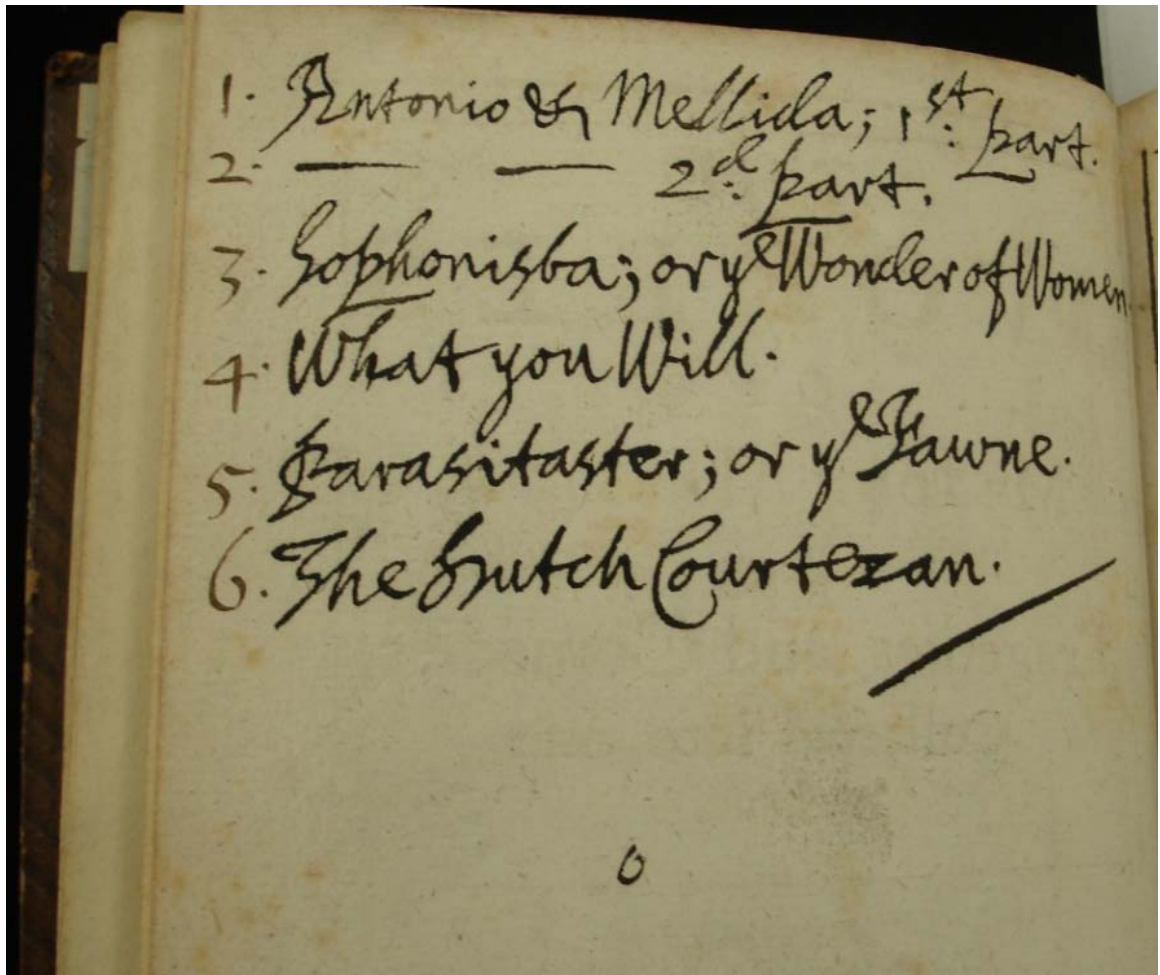 1. Antonio & Mellida; 1st: part.
2. — — 2d: part.
3. Sophonisba; or ye Wonder of Women.
4. What you Will.
5. Parasitaster; or ye Fawne.
6. The Dutch Courtezan.
6